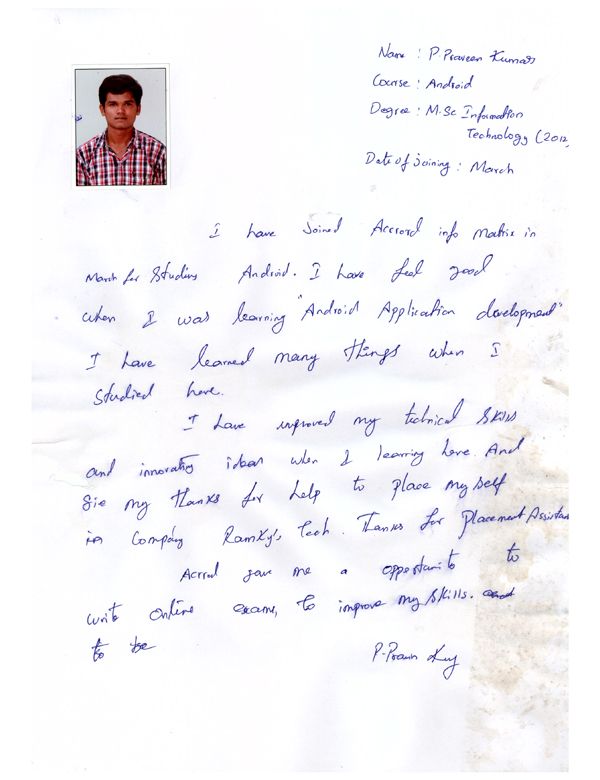 Name : P. Praveen Kumar
Course : Android
Degree : M.Sc Information
Technology (2012
Date of joining : March
I have Joined Accrord info matrix in
March for Studins Android. I have feel good
when I was learning "Android Application development"
I have learned many things when I
studied here.
I have improved my technical skills
and innovating ideas when I learning here. And
Sir my thanks for help to place my self
in Company RamKy's Tech. Thanks for Placement Assistan
Accrod gave me a opportunite to
write online exams, to improve my skills. and
to be
P. Praven